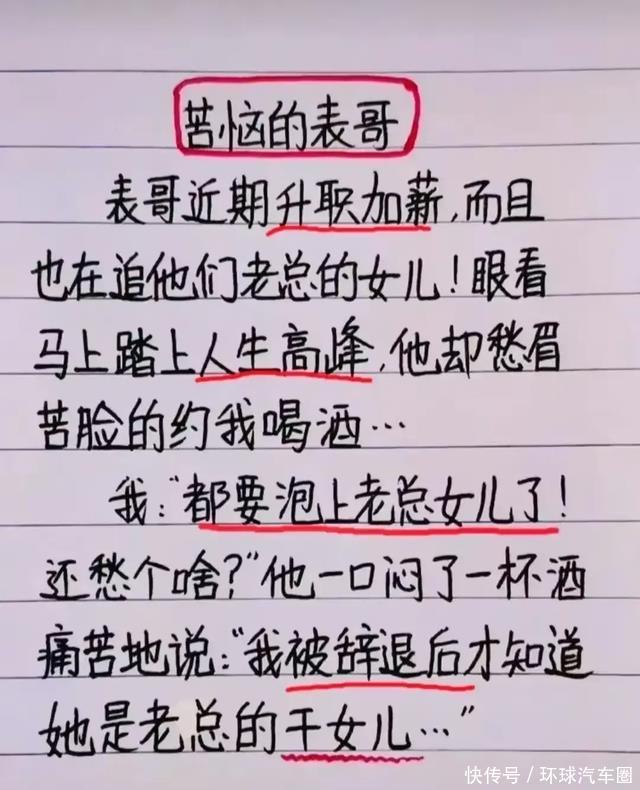 苦恼的表哥
表哥近期升职加薪,而且
也在追他们老总的女儿!眼看
马上踏上人生高峰,他却愁眉
苦脸的约我喝酒…
我:“都要泡上老总女儿了!
还愁个啥?”他一口闷了一杯酒
痛苦地说:“我被辞退后才知道
她是老总的干女儿…”
快传号/环球汽车圈